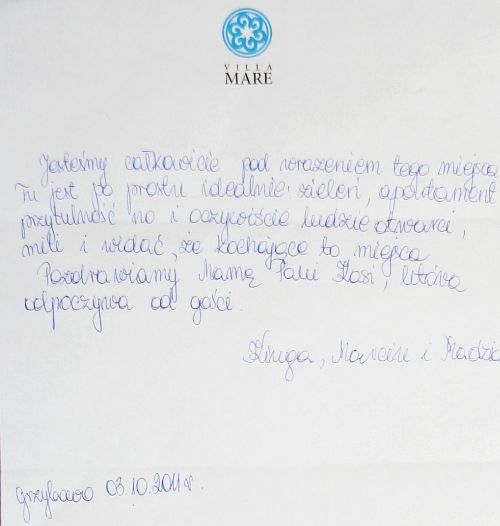 VILLA
MARE
Jesteśmy całkowicie pod wrażeniem tego miejsca
Tu jest po prostu idealnie: zieleń, apartament
przytulność no i oczywiście ludzie otwarci,
mili i widać, że kochające to miejsca
Pozdrawiamy Mamę Pani Kasi, która
odpoczywa od gości.
Kinga, Marcin i Madzia
Grzybowo 03.10.2011r.